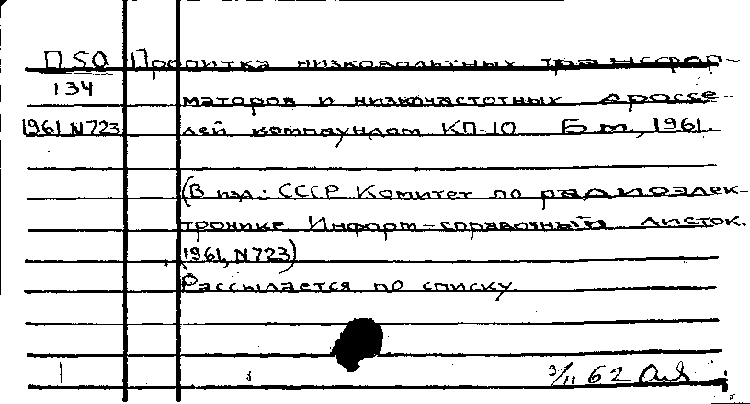 П50 Пропитка низковольтных трансфор-
134
маторов и низкочастотных дроссе-
1961 N723 лей компаундом КП-10 Б.м., 1961.
(В изд.: СССР Комитет по радиоэлек-
тронике Информ-справочный листок.
1961, N723)
Рассылается по списку.
3/II 62